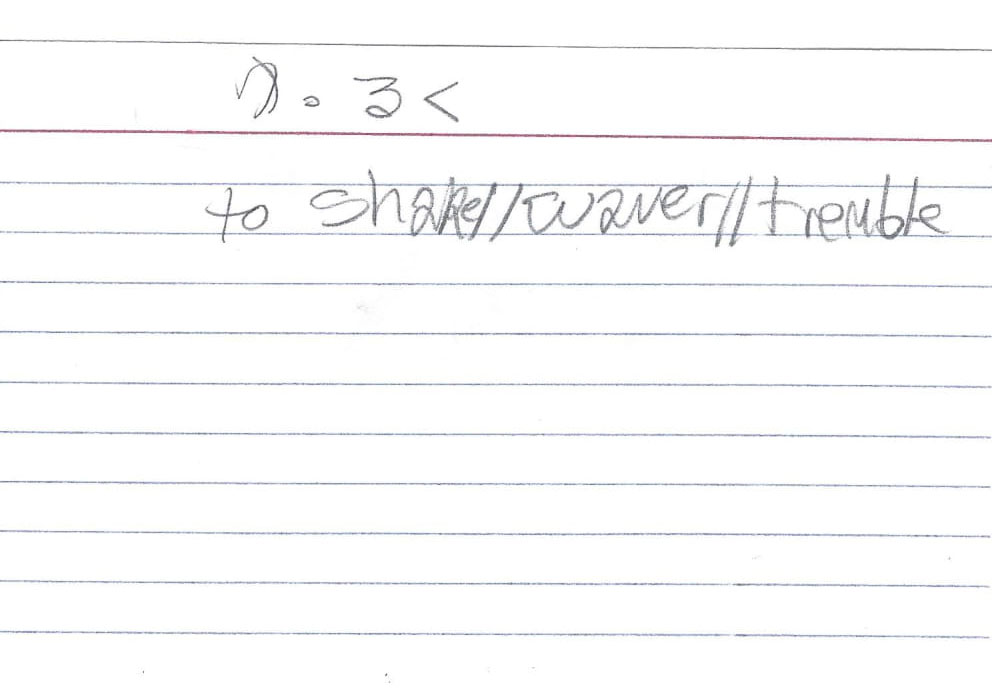 ゆ。ろく
to shake//waver//tremble